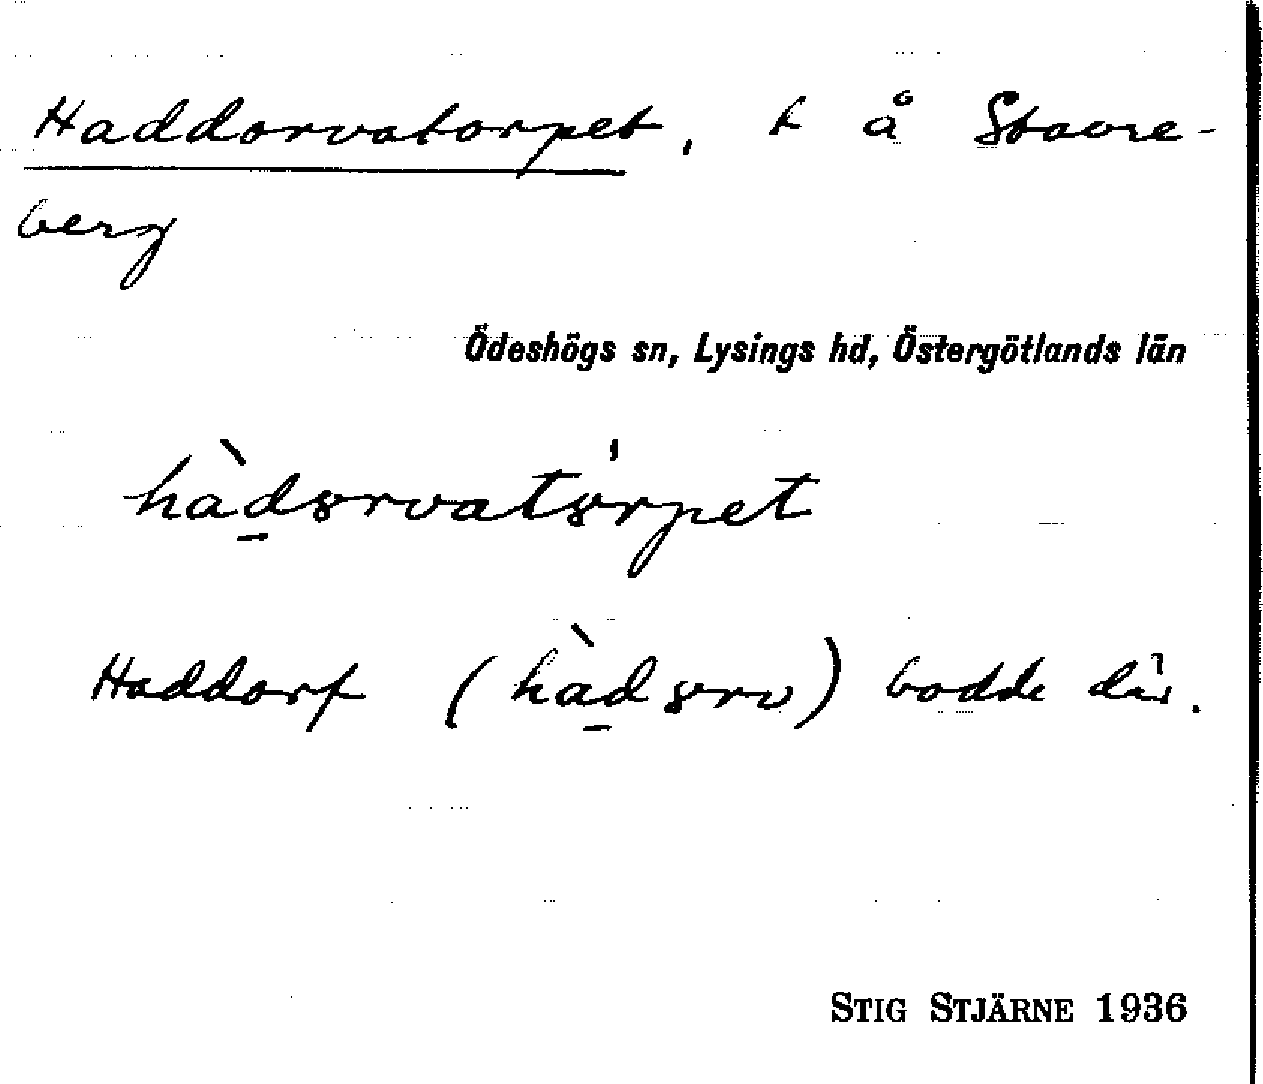 Haddorvatorpet, t å Stavre-
berg
Ödeshögs sn, Lysings hd, Östergötlands län
hàdơrvatớrpet
Haddorf (hàdơrv) bodde där.
STIG STJÄRNE 1936